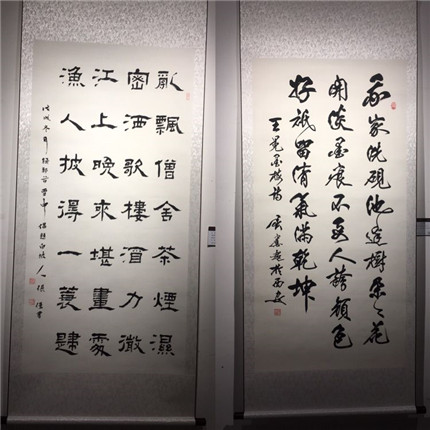 亂飄僧舍茶煙濕
密洒歌樓酒力微
江上晚來堪畫處
漁人披得一蓑歸
戊戌冬月 錄鄭谷雪中偶題
我家洗硯池邊樹朵〻花
開淡墨痕不要人誇顏色
好祇留清氣滿乾坤
王冕墨梅詩 於西安